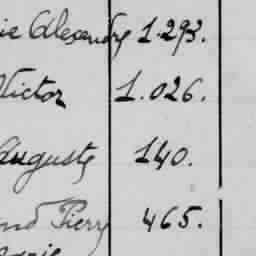 ie Alexandre 1.293.
Victor 1.026.
Auguste 140.
Pierre 465.